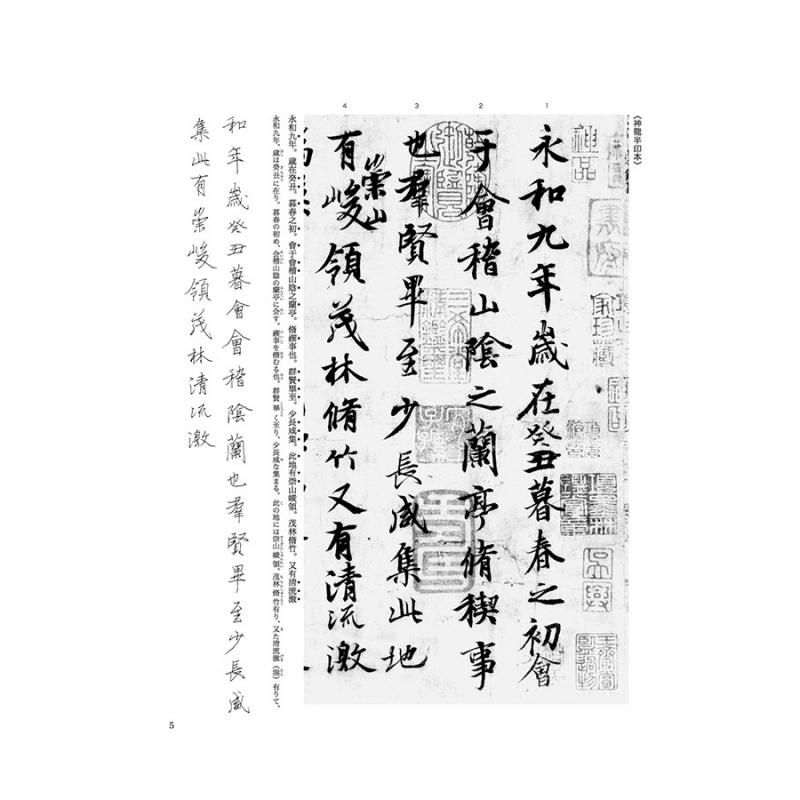 〈神龍半印本〉
1
2
3
4
永和九年歳在癸丑暮春之初會
于會稽山陰之蘭亭脩稧事
也羣賢畢至少長咸集此地
有崇山峻領茂林脩竹又有清流激
永和九年。歳在癸丑。暮春之初。會于會稽山陰之蘭亭。脩禊事也。群賢畢至。少長咸集。此地有崇山峻領。茂林脩竹。又有清流激
永和九年、歳は癸丑に在り。暮春の初め、会稽山陰の蘭亭に会す。禊事を脩むる也。群賢畢く至り、少長咸な集まる。此の地には崇山峻領、茂林脩竹有り、又た清流激（湍）有りて、
和年歳癸丑暮會會稽陰蘭也羣賢畢至少長咸
集此有崇峻領茂林清流激
5